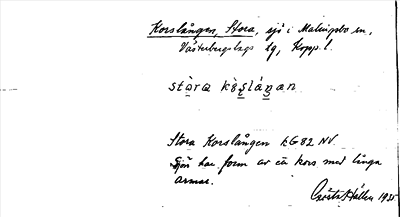 Korslången, Stora, sjö i Malingsbo sn,
Västerbergslags hg, Kopp. l.
Stora Korslången kG82 NV.
Sjön har form av ett kors med långa
armar.
Gösta Hallen 1935